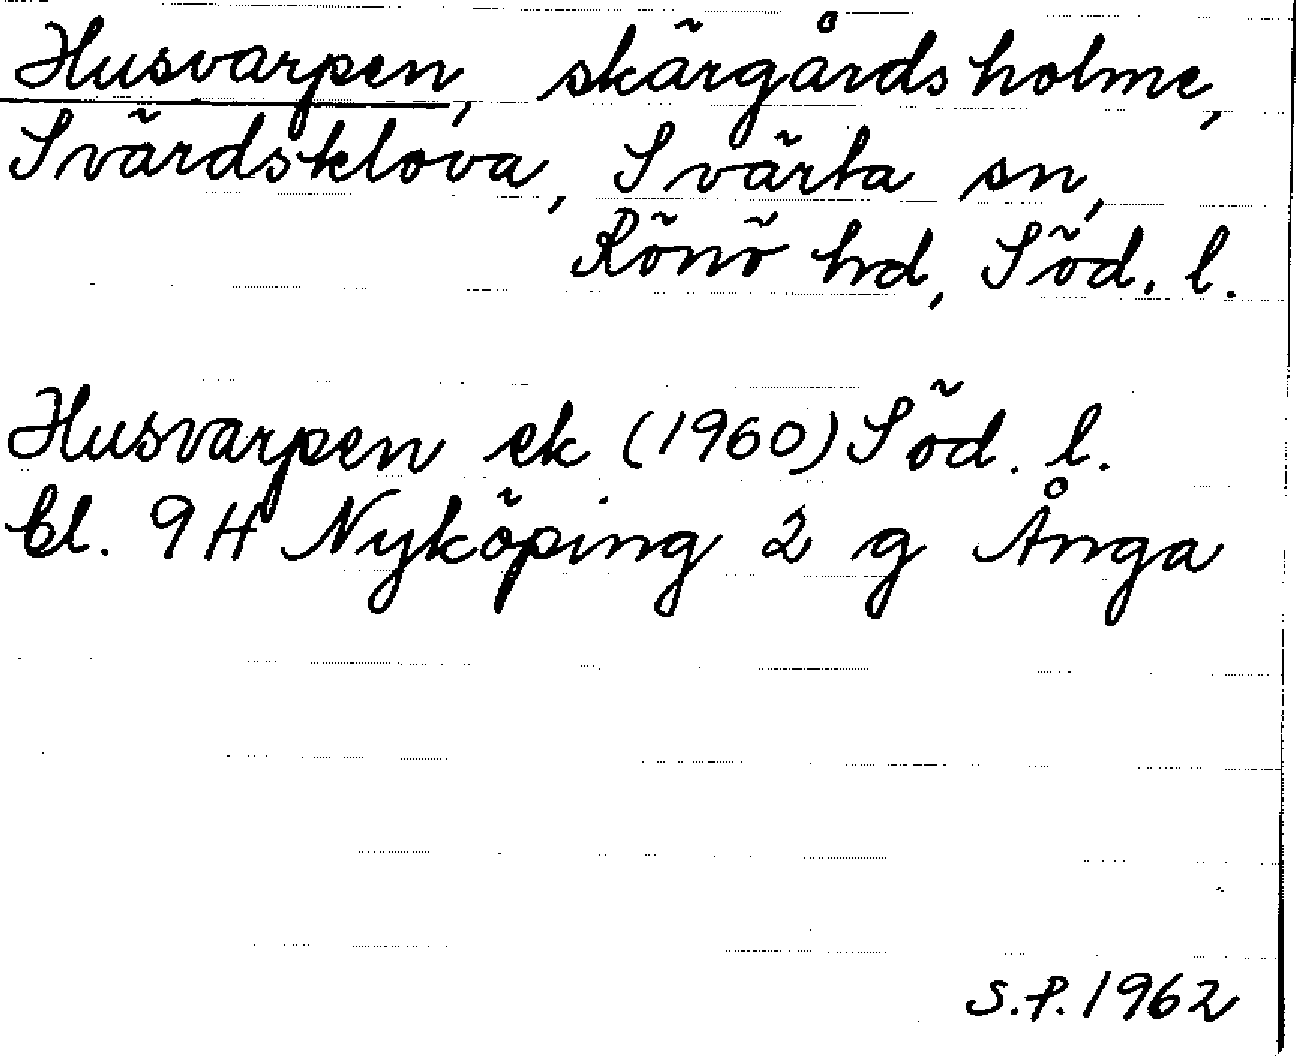 Husvarpen, skärgårdsholme,
Svärdsklova, Svärta sn,
Rönö hd, Söd. l.
Husvarpen ek (1960) Söd. l.
bl. 9 H Nyköping 2 g Ånga
S.P. 1962